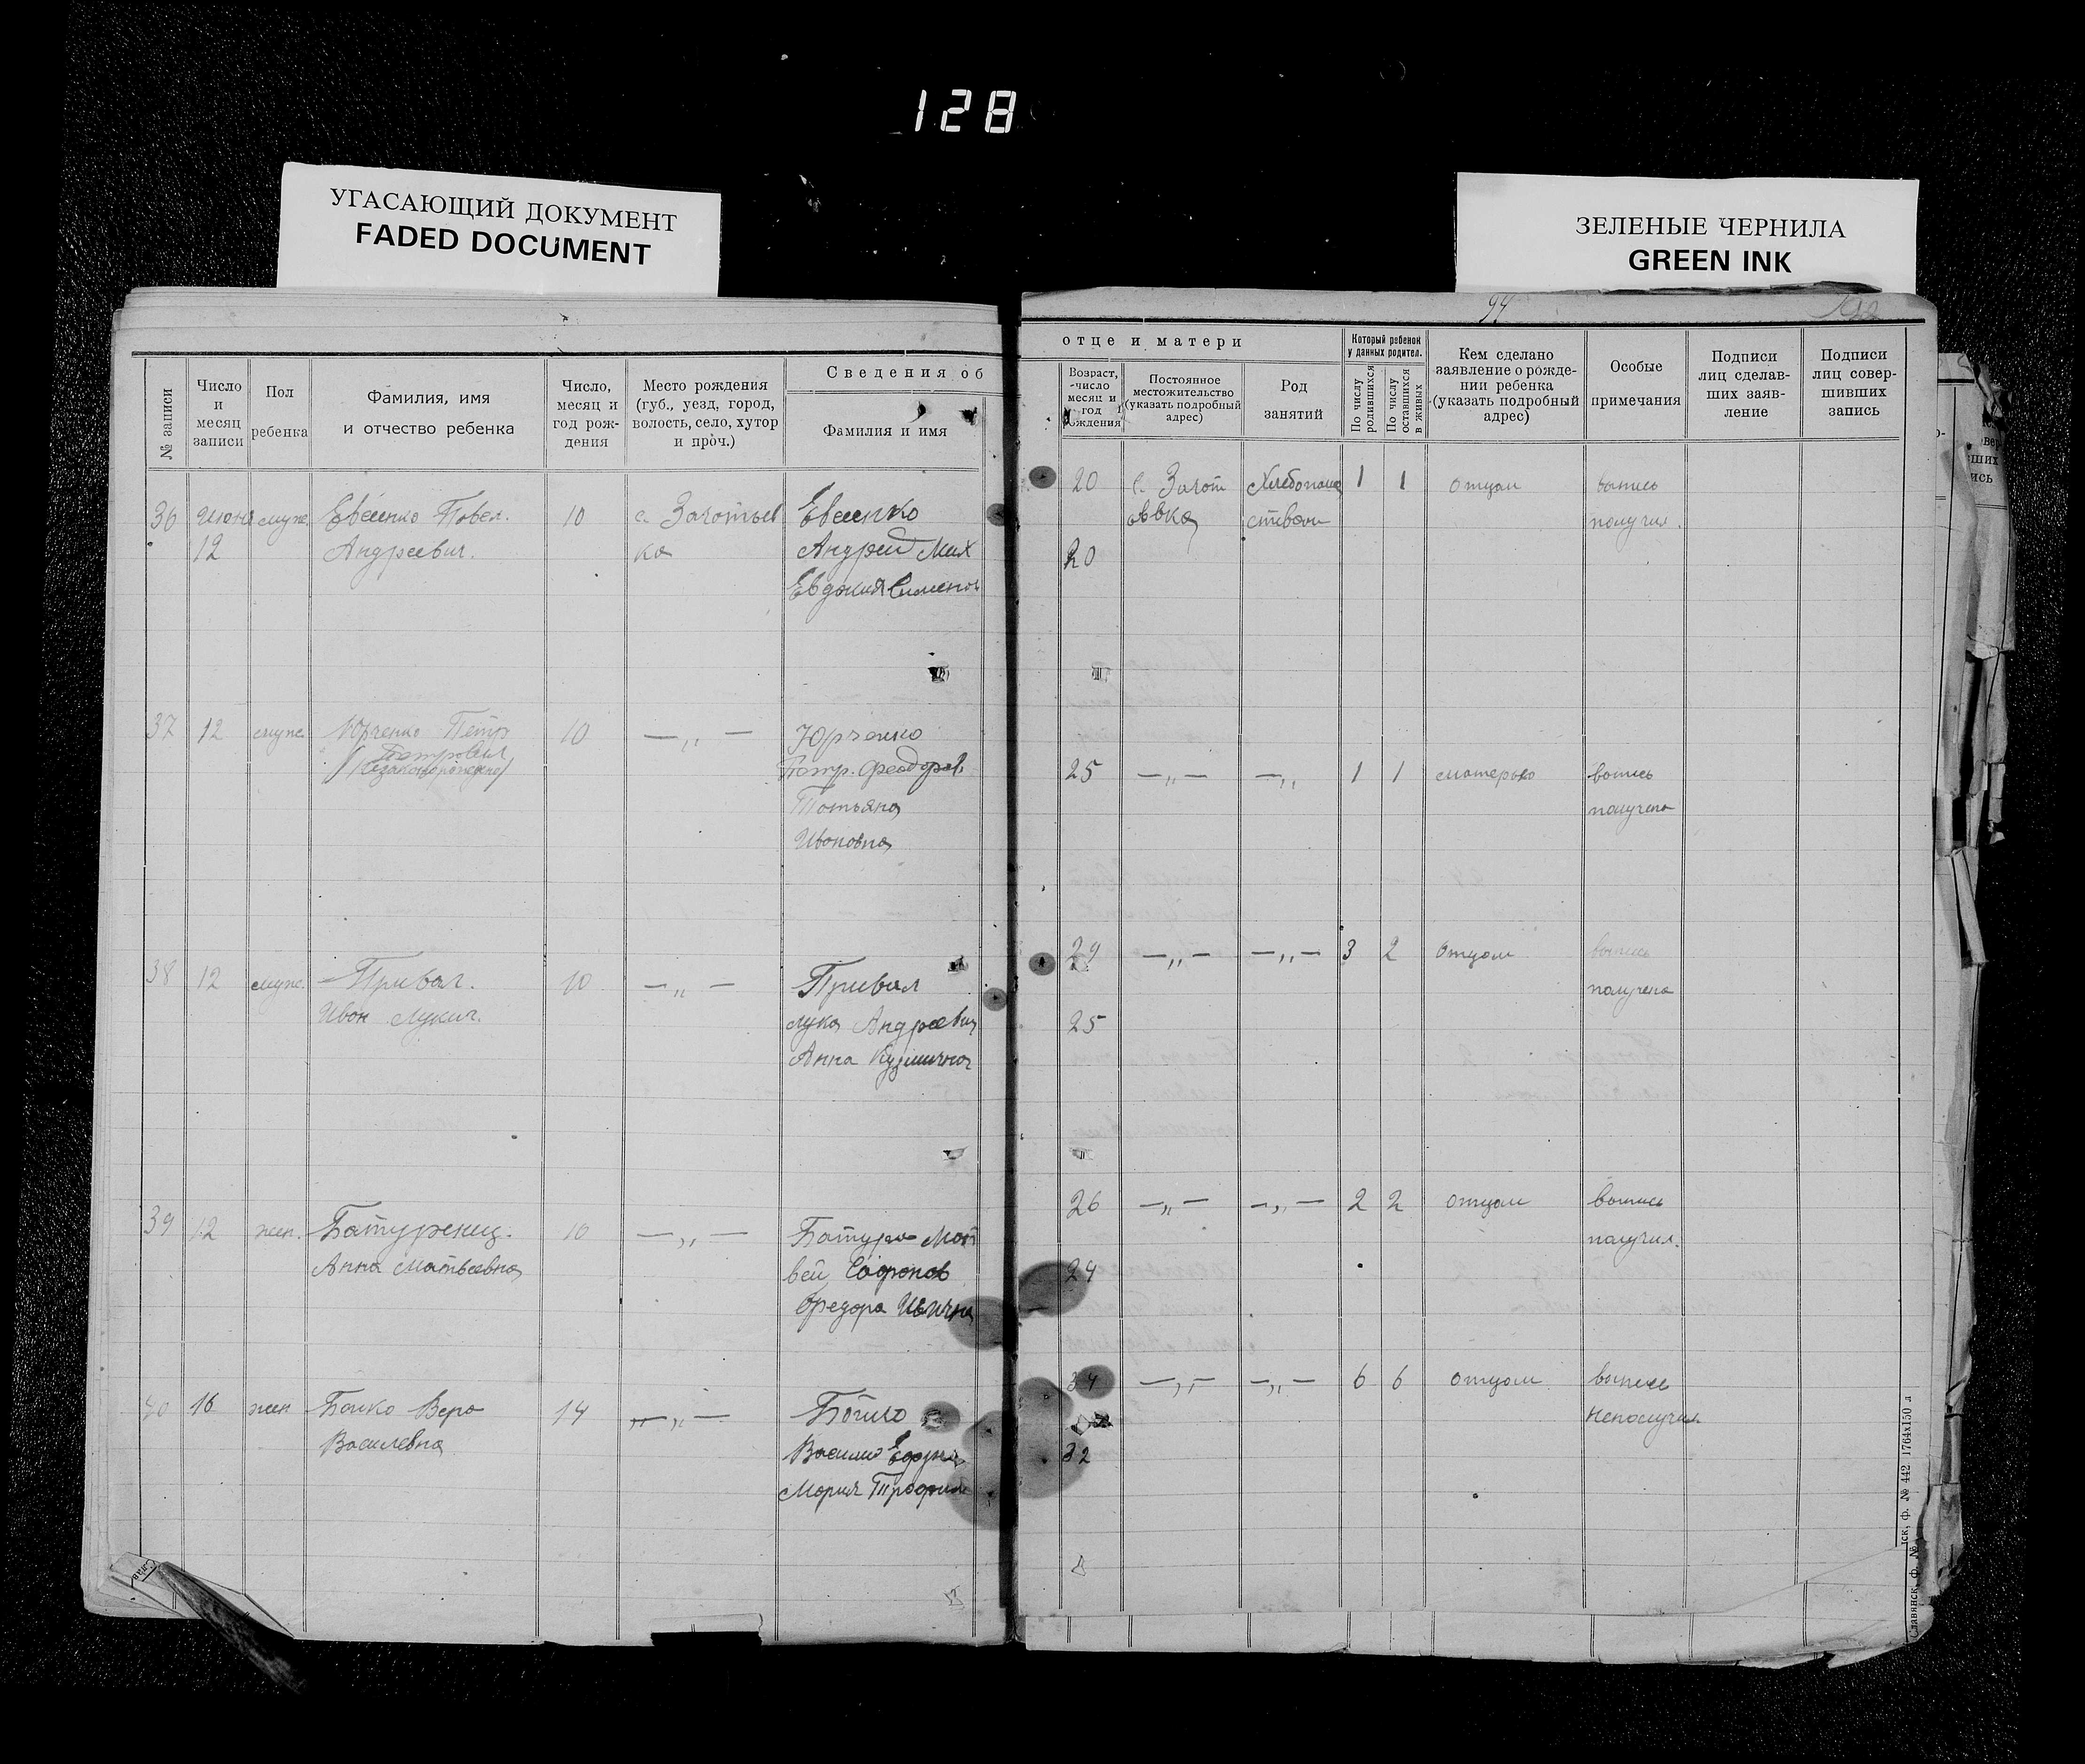 128
УГАСАЮЩИЙ ДОКУМЕНТ
FADED DOCUMENT
ЗЕЛЕНЫЕ ЧЕРНИЛА
GREEN INK
94
№ записи
Число и месяц записи
Пол ребенка
Фамилия, имя и отчество ребенка
Число, месяц и год рождения
Место рождения (губ., уезд, город, волость, село, хутор и проч.)
Сведения об
Фамилия и имя
отце и матери
Возраст, число месяц и год рождения
Постоянное местожительство (указать подробный адрес)
Род занятий
Который ребенок у данных родител.
По числу родившихся
По числу оставшихся в живых
Кем сделано заявление о рождении ребенка (указать подробный адрес)
Особые примечания
Подписи лиц сделавших заявление
Подписи лиц совершивших запись
36 Июня муж. Евсенко Павел. 10 с. Золотыев Евсенко
12 Андреевич. ка Андрей Мих
Евдокия Сименов
20 с. Золот Хлебопаш 1 1 отцом выпись
овка еством получил.
20
37 12 муж. Юрченко Петр 10 — „ — Юрченко
Петрович Петр. Феодоров
/незаконорожено/ Татьяна
Ивановна
25 — „ — — „ 1 1 матерью выпись
получена
38 12 муж. Привал. 10 — „ — Привал
Иван Лукич. Лука Андреевич
Анна Кузминична
29 — „ — — „ — 3 2 отцом выпись
получена
25
39 12 жен. Батуренец. 10 — „ — Батура Мат
Анна Матвеевна вей Софонов
26 — „ — — „ — 2 2 отцом выпись
получил.
24
40 16 жен Бойко Вера 14 — „ — Бойко
Василевна Василий
Мария Трофим
34 — „ — — „ — 6 6 отцом выпись
неполучил
32
ф. № 442 1764х150 л
Славянск, ф. №